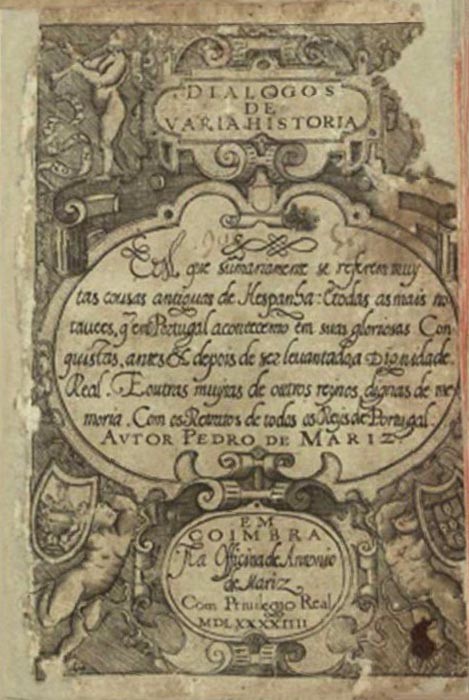 DIALOGOS
DE
VARIA HISTORIA
Em que sumariamente se referem muy
tas cousas antiguas de Hespanha: & todas as mais no
tavees, q̃ em Portugal acontecerão em suas gloriosas Con
quistas, antes & depois de ser levantado a Dignidade
Real. E outras muytas de outros reynos, dignas de me
moria. Com os Retratos de todos os Reys de Portugal.
AVTOR PEDRO DE MARIZ.
EM
COIMBRA
Na Officina de Antonio
de Mariz
Com Privilegio Real
MDLXXXXIIII